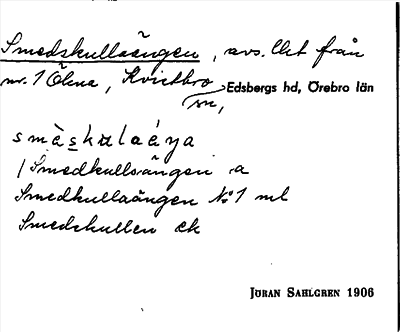 Smedskullaängen, avs. lht från
nr. 1 Ölme, Kvistbro
sn, Edsbergs hd, Örebro län
smèskulaáya
/Smedkullsängen a
Smedkullaängen No 1 ml
Smedskullen ek
Jöran Sahlgren 1906